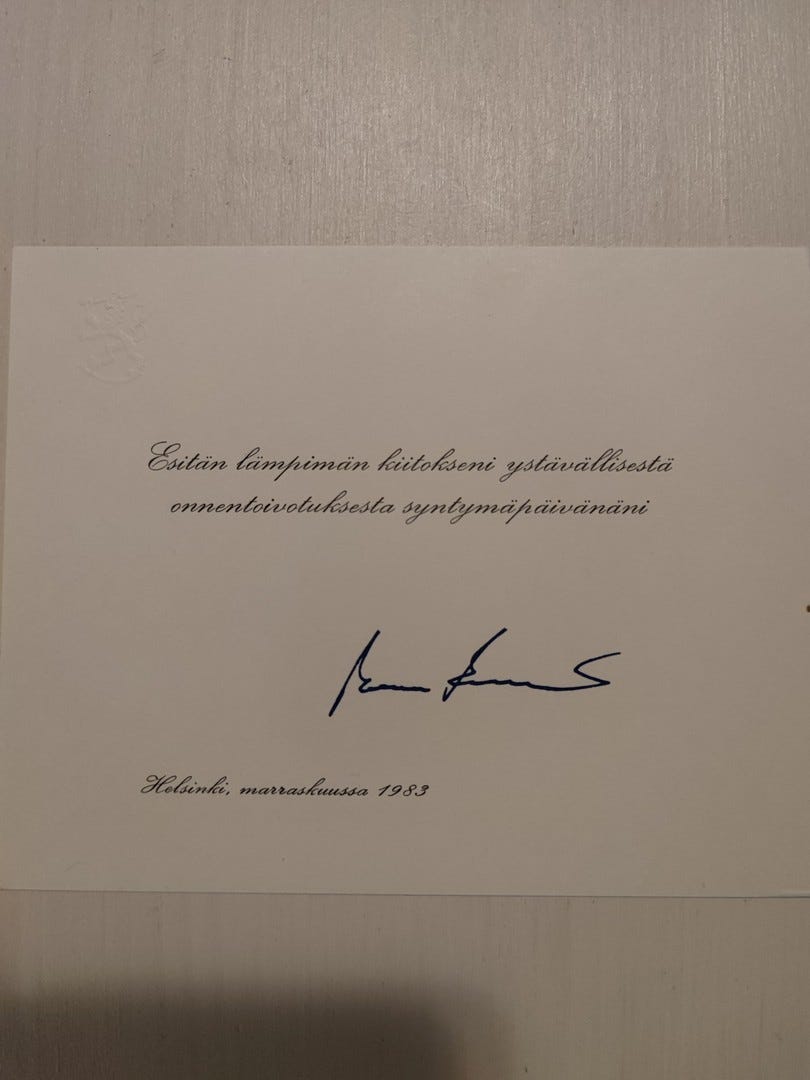 Esitän lämpimän kiitokseni ystävällisestä
onnentoivotuksesta syntymäpäivänäni
Helsinki, marraskuussa 1983